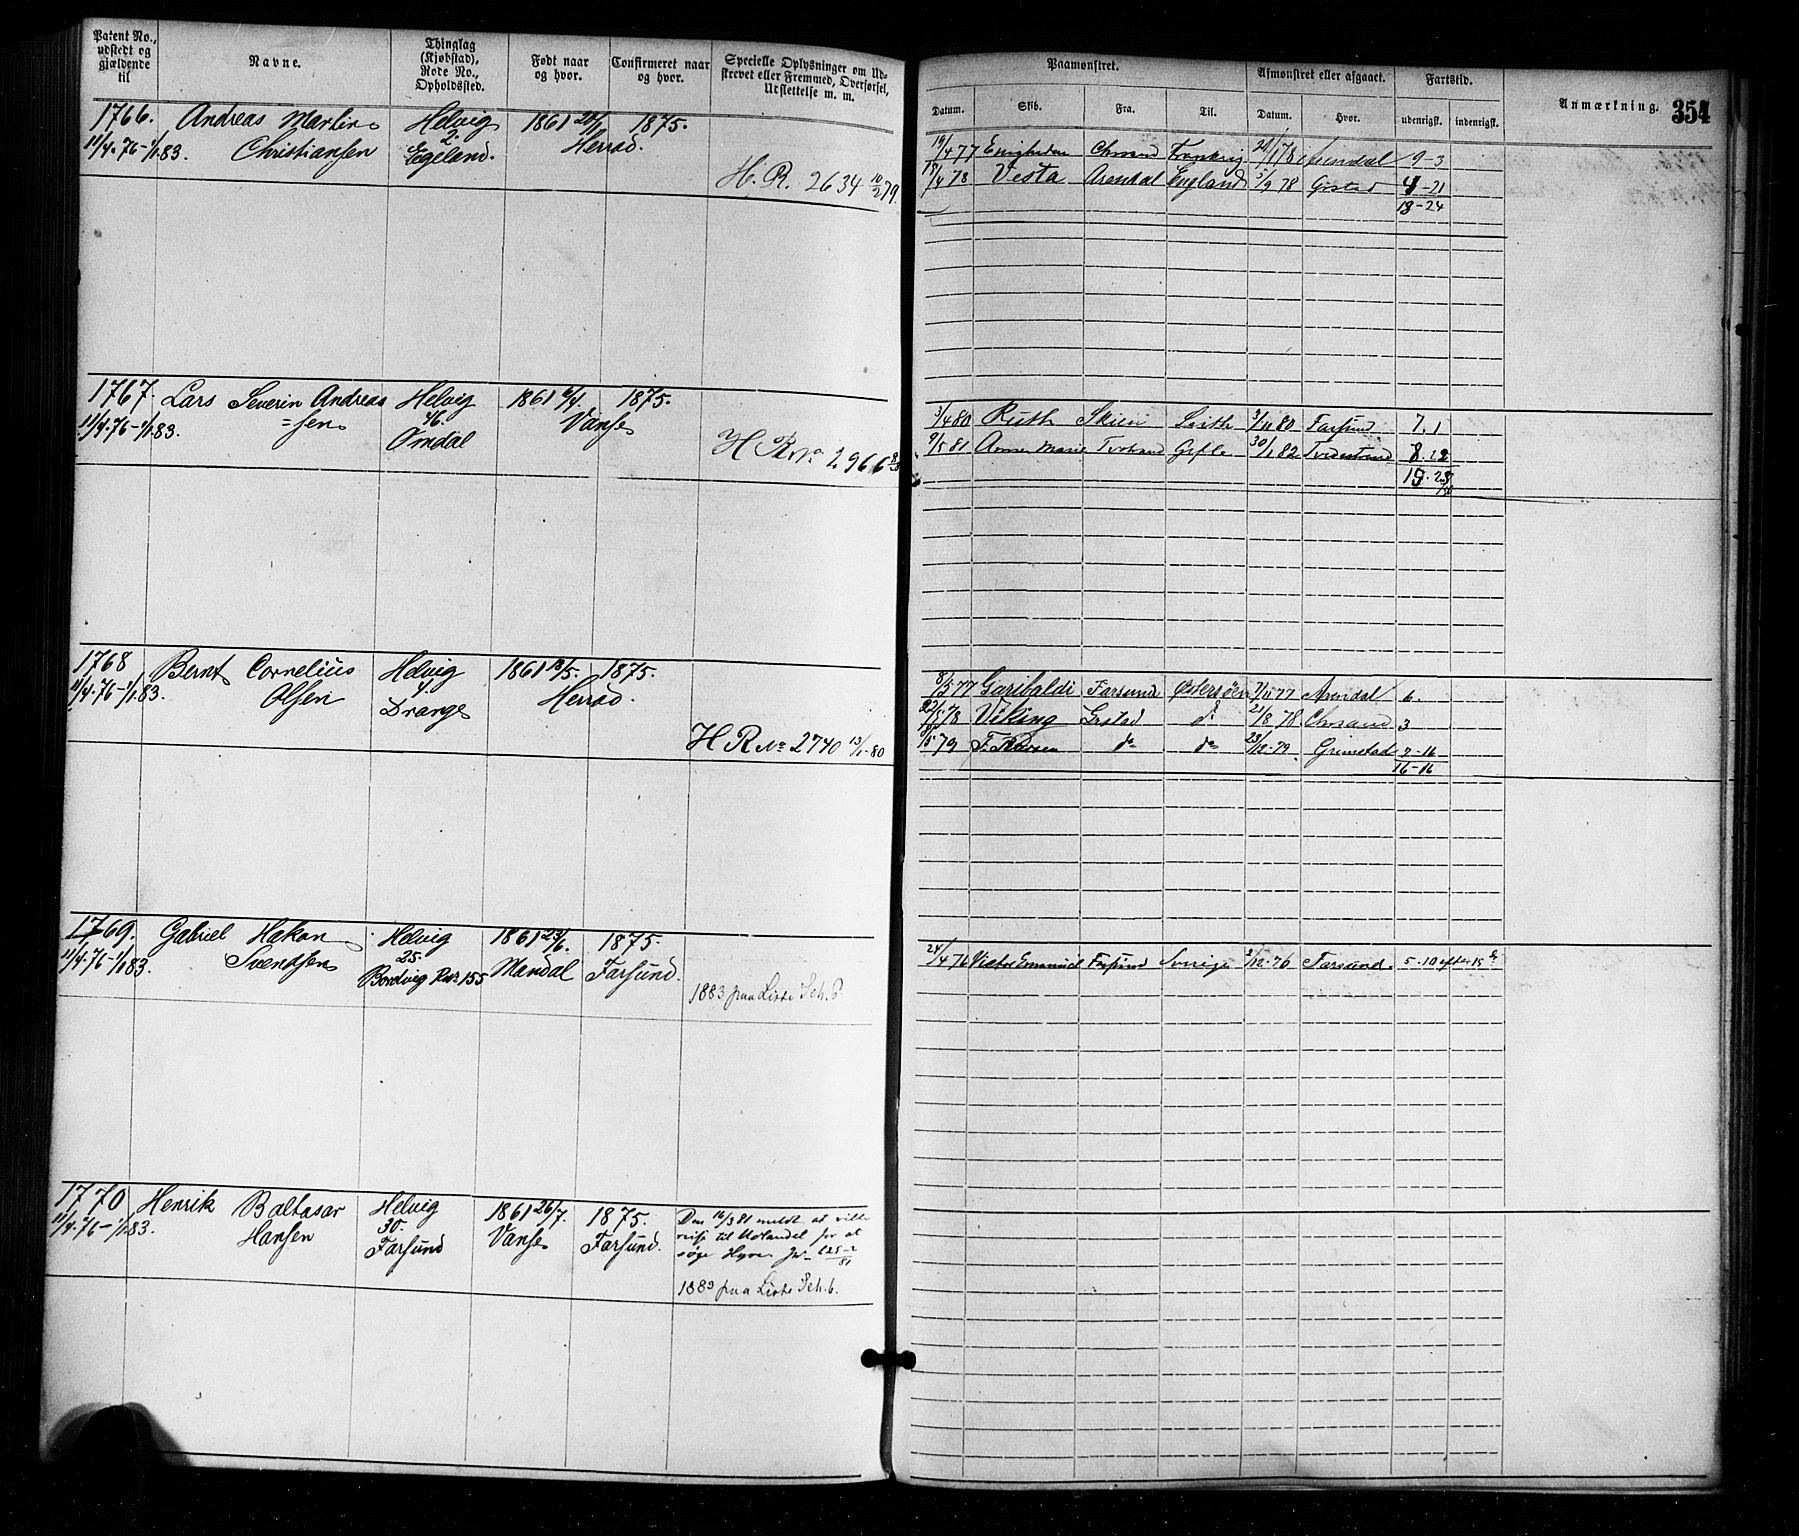 Patent No., udstedt og gjældende til
Navne.
Thinglag (Kjøbstad), Rode No., Opholdssted.
Født naar og hvor.
Confirmeret naar og hvor.
Specielle Oplysninger om Udstrevet eller Fremmed, Overførsel, Udslettelse m. m.
Paamønstret.
Datum.
Skib.
Fra.
Til.
Afmønstret eller afgaaet.
Datum.
Hvor.
Fartstid.
udenrigsk.
indenrigsk.
Anmærkning.
354
1766. Andreas Martin Helvig 1861 1875.
11/4.76-1/1.83. Christiansen 2. Egeland. Herrad.
H. R. 2634 10/2 79.
19/4 77 Enigheden Chrsand Frankrig 78 Arendal 9-3
18/4 78 Vesta Arendal England 5/9 78 Grstad 4-21
13-24
1767. Lars Severin Andreas Helvig 1861 6/4 1875.
11/4.76-1/1.83. =sen 46. Omdal Vanse
H R No 2966
3/4 80 Ruth Skien Leith 3/11 80 Farsund 7.1
9/5 81 Anne Marie Gefle 30/1 82 Tvedestrand 8.22
1768 Bernt Cornelius Helvig 1861 18/5. 1875.
11/4.76-1/1.83. Olsen 4. Drange Herrad.
H R No 2740 13/1-80
8/5 77 Garibaldi Farsund Østersøen 7/11 77 Arendal 6.
22/5 78 Viking Grstad do 21/8 78 Chrsand 3
79 do do 23/12-79 Grimstad 7-16
16-16
1769. Gabriel Hakon Helvig 1861 23/6. 1875.
11/4.76-1/1.83. Svendsen 25. Mandal Farsund.
Bordvig 155
1883 paa Liste Sch. 6.
24/4 76 Victor Emanuel Farsund Sverige 2/12-76 Farsund. 5.10
1770 Henrik Baltasar Helvig 1861 26/7. 1875.
11/4.76-1/1.83. Hansen 30. Farsund Vanse Farsund.
Den 16/3 81 meldt at ville
reise til Udlandet for at
søge Hyre
1883 paa Liste Sch. 6.